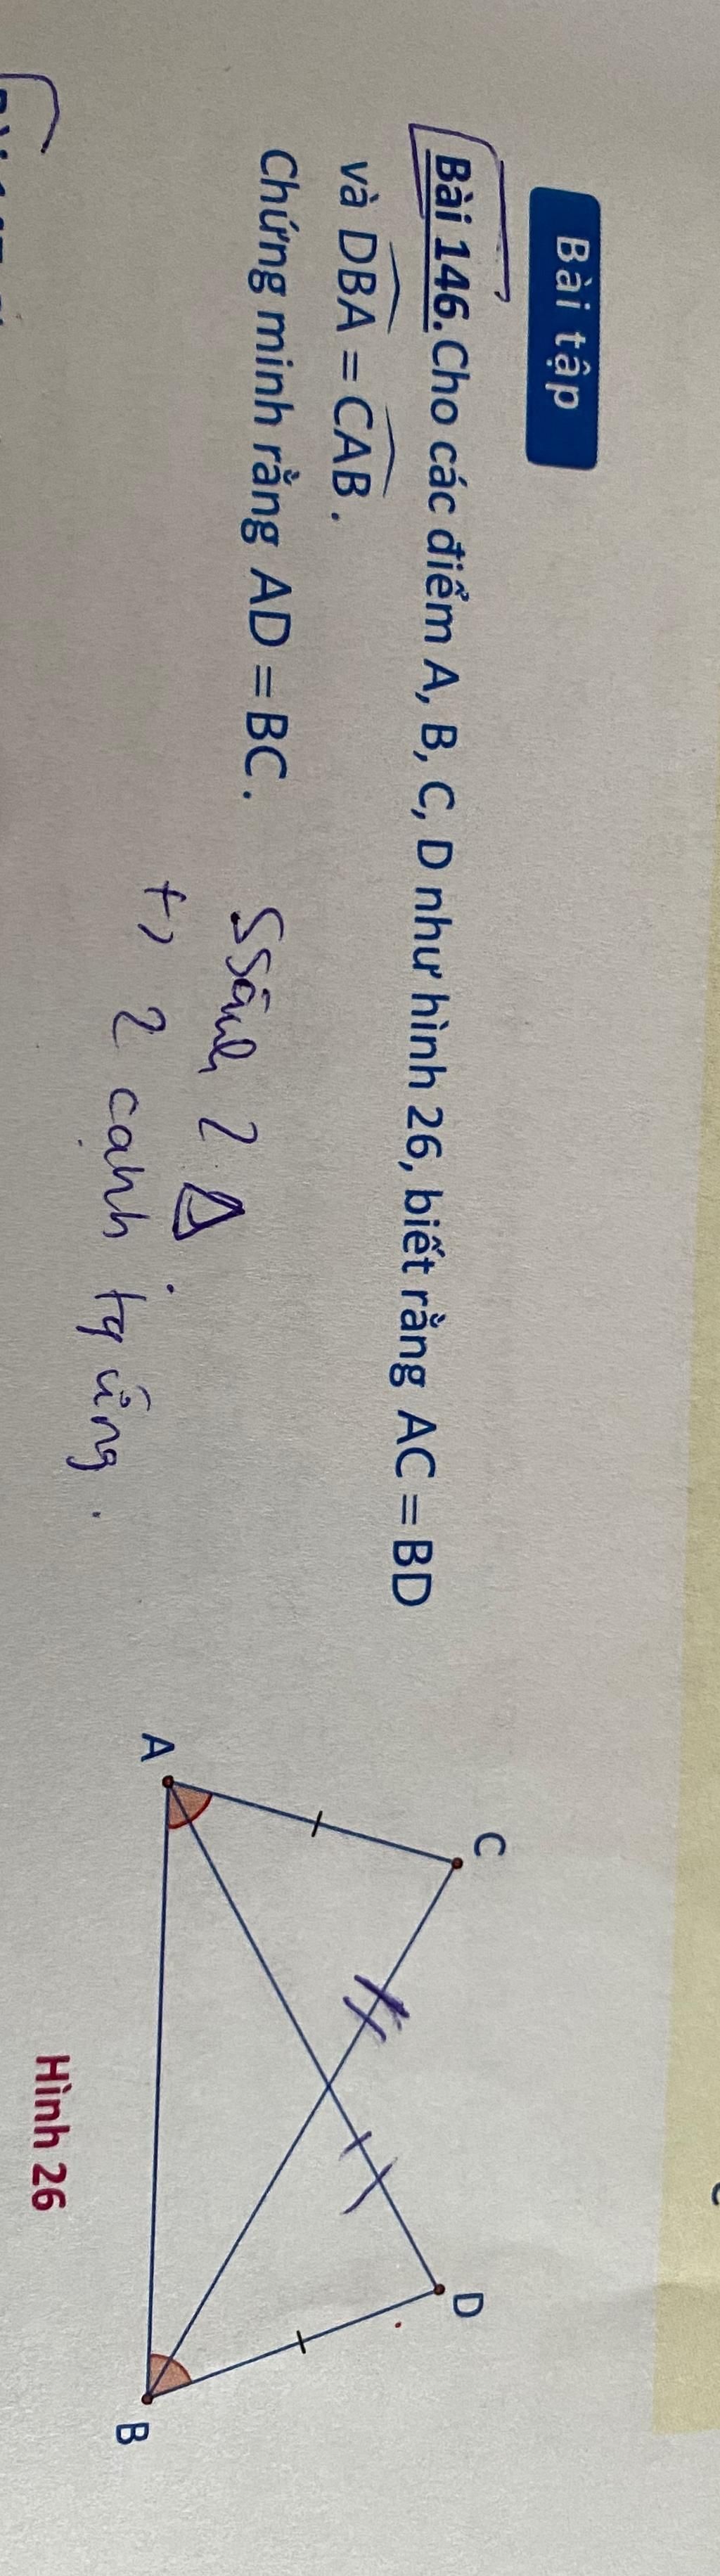 Bài tập
Bài 146. Cho các điểm A, B, C, D như hình 26, biết rằng AC = BD
và DBA = CAB.
Chứng minh rằng AD = BC.
Ssánh 2 Δ
+) 2 cạnh tg ứng.
C
D
A
B
Hình 26